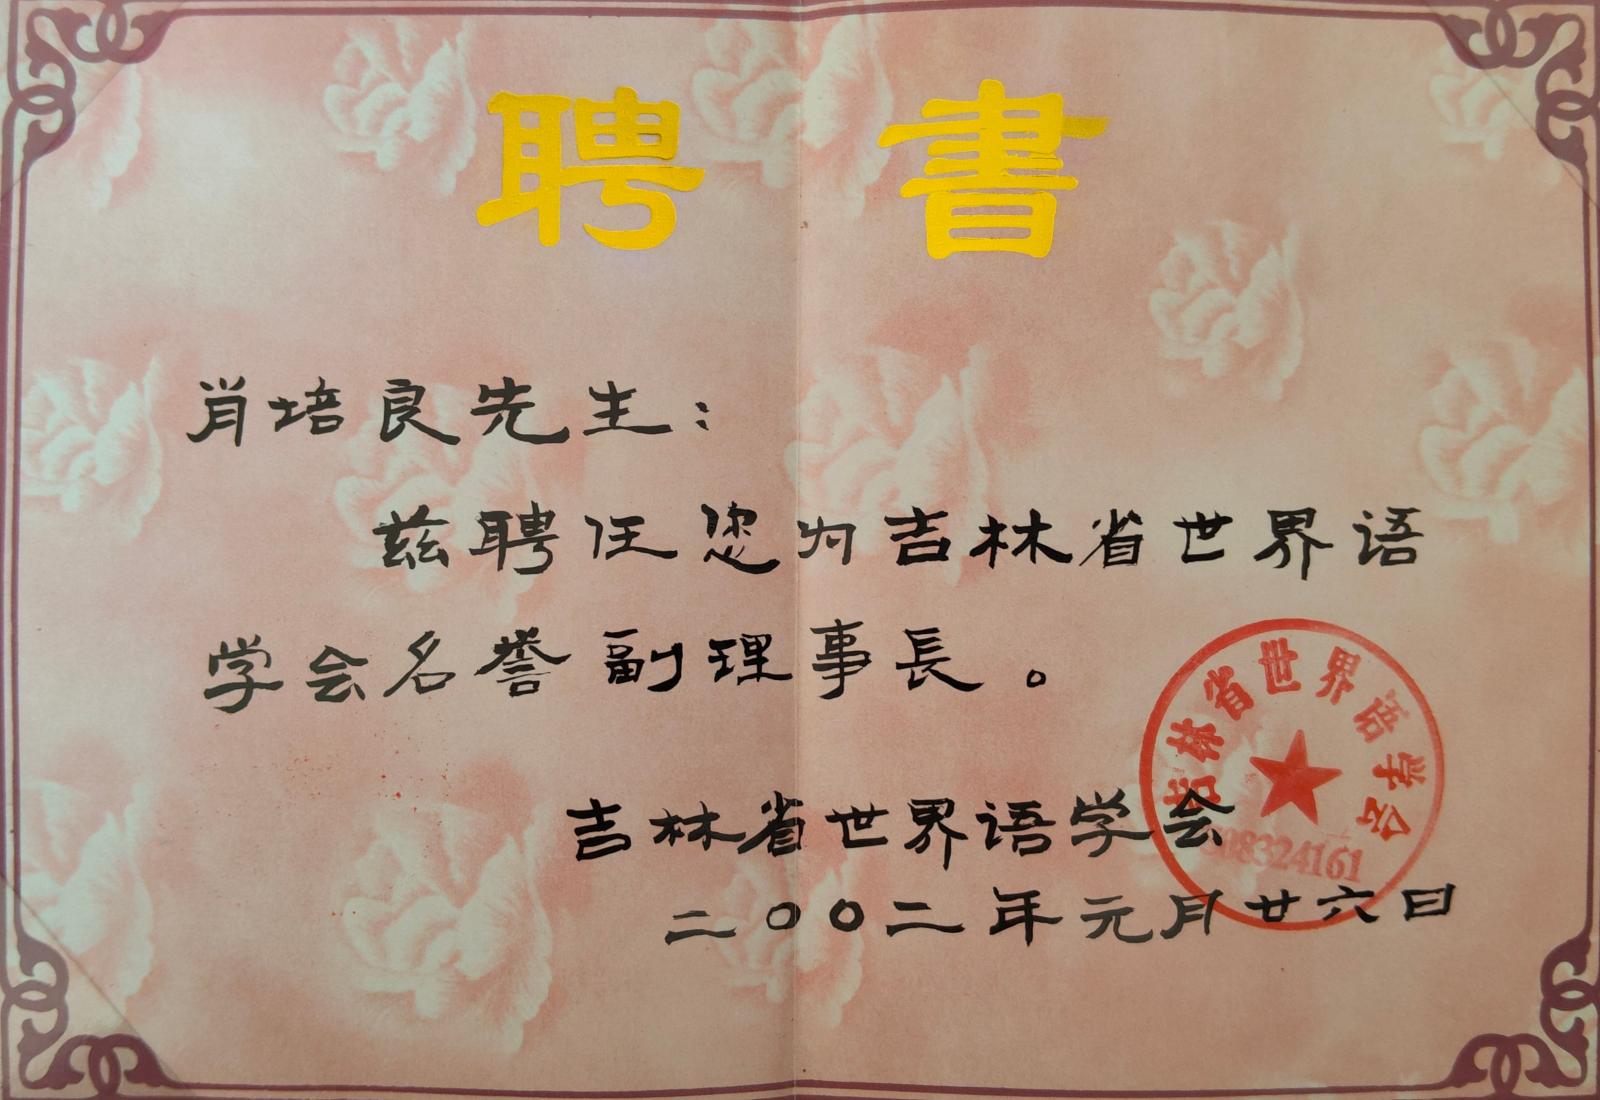 聘書
肖培良先生：
兹聘任您为吉林省世界语
学会名誉副理事長。
吉林省世界语学会
二〇〇二年元月廿六日
吉林省世界语学会
08324161